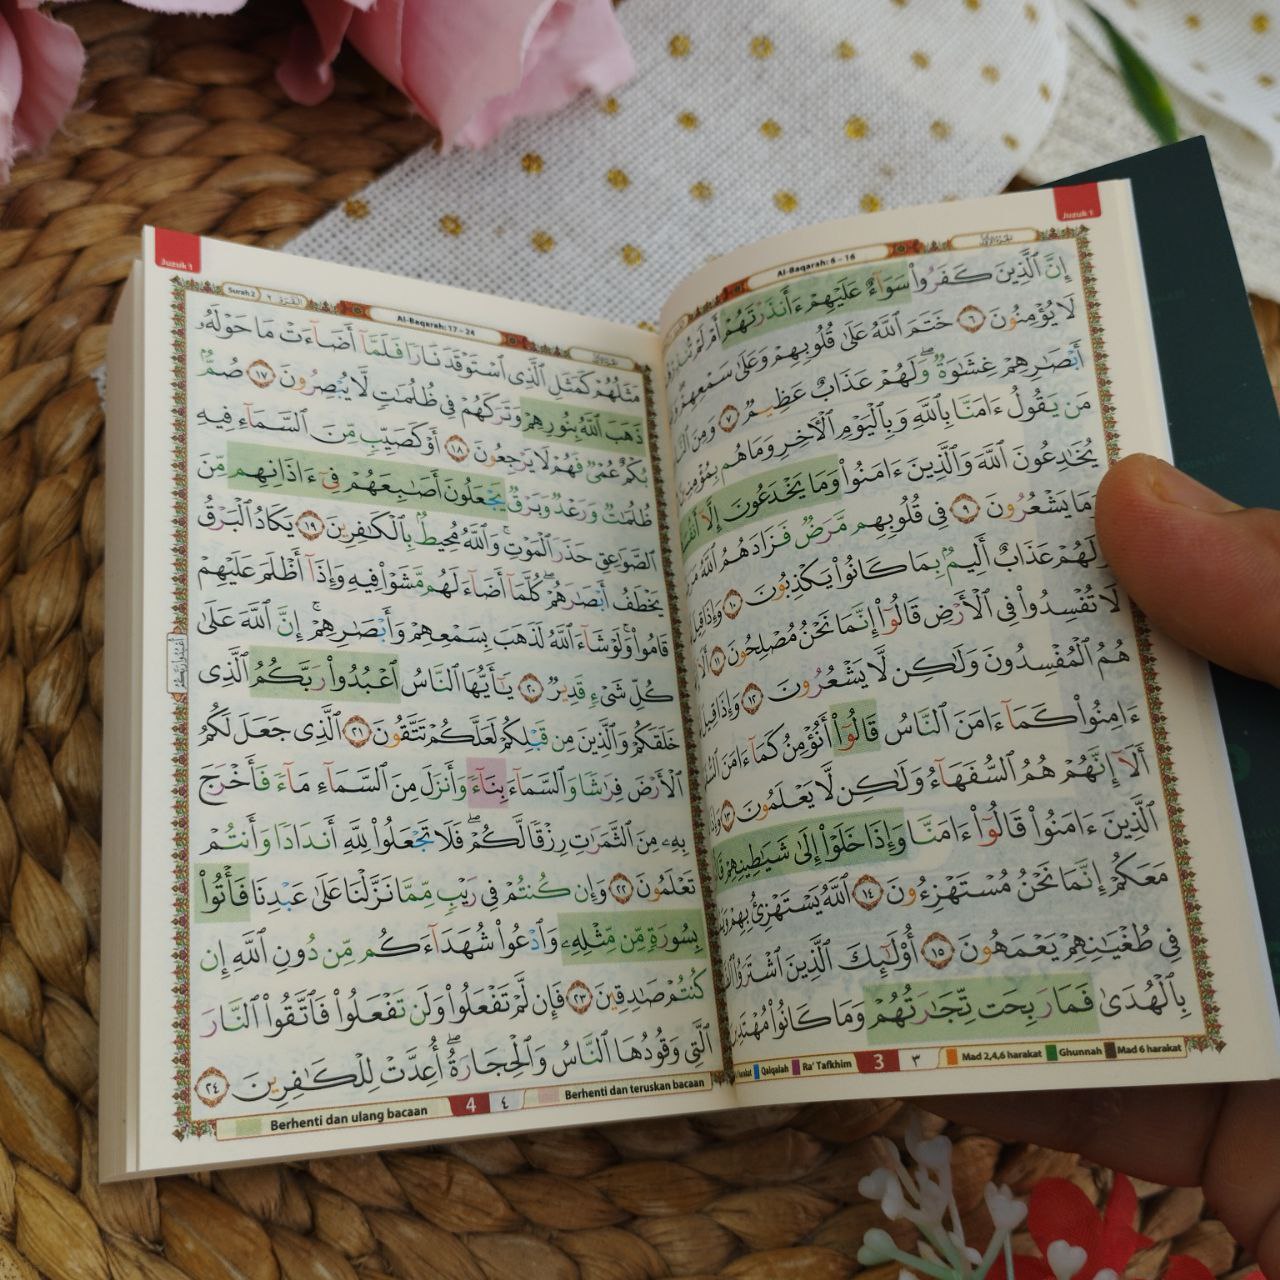 Juzuk 1
Al-Baqarah: 6 - 16
إِنَّ ٱلَّذِينَ كَفَرُوا۟ سَوَآءٌ عَلَيْهِمْ ءَأَنذَرْتَهُمْ أَمْ لَمْ
لَا يُؤْمِنُونَ ٦ خَتَمَ ٱللَّهُ عَلَىٰ قُلُوبِهِمْ وَعَلَىٰ سَمْعِهِمْ ۖ
أَبْصَـٰرِهِمْ غِشَـٰوَةٌ ۖ وَلَهُمْ عَذَابٌ عَظِيمٌ ٧ وَمِنَ
مَن يَقُولُ ءَامَنَّا بِٱللَّهِ وَبِٱلْيَوْمِ ٱلْـَٔاخِرِ وَمَا هُم
يُخَـٰدِعُونَ ٱللَّهَ وَٱلَّذِينَ ءَامَنُوا۟ وَمَا يَخْدَعُونَ إِلَّآ
وَمَا يَشْعُرُونَ ٩ فِى قُلُوبِهِم مَّرَضٌ فَزَادَهُمُ ٱللَّهُ
وَلَهُمْ عَذَابٌ أَلِيمٌۢ بِمَا كَانُوا۟ يَكْذِبُونَ ١٠ وَإِذَا قِيلَ
لَا تُفْسِدُوا۟ فِى ٱلْأَرْضِ قَالُوٓا۟ إِنَّمَا نَحْنُ مُصْلِحُونَ ١١ أَلَآ
هُمُ ٱلْمُفْسِدُونَ وَلَـٰكِن لَّا يَشْعُرُونَ ١٢ وَإِذَا قِيلَ
ءَامِنُوا۟ كَمَآ ءَامَنَ ٱلنَّاسُ قَالُوٓا۟ أَنُؤْمِنُ كَمَآ ءَامَنَ
أَلَآ إِنَّهُمْ هُمُ ٱلسُّفَهَآءُ وَلَـٰكِن لَّا يَعْلَمُونَ ١٣
ٱلَّذِينَ ءَامَنُوا۟ قَالُوٓا۟ ءَامَنَّا وَإِذَا خَلَوْا۟ إِلَىٰ شَيَـٰطِينِهِمْ
مَعَكُمْ إِنَّمَا نَحْنُ مُسْتَهْزِءُونَ ١٤ ٱللَّهُ يَسْتَهْزِئُ بِهِمْ
فِى طُغْيَـٰنِهِمْ يَعْمَهُونَ ١٥ أُو۟لَـٰٓئِكَ ٱلَّذِينَ ٱشْتَرَوُا۟
بِٱلْهُدَىٰ فَمَا رَبِحَت تِّجَـٰرَتُهُمْ وَمَا كَانُوا۟ مُهْتَدِينَ
Qalqalah Ra' Tafkhim 3 ٣ Mad 2,4,6 harakat Ghunnah Mad 6 harakat
Juzuk 1
Surah 2 البقرة ٢ Al-Baqarah: 17 - 24
مَثَلُهُمْ كَمَثَلِ ٱلَّذِى ٱسْتَوْقَدَ نَارًا فَلَمَّآ أَضَآءَتْ مَا حَوْلَهُۥ
ذَهَبَ ٱللَّهُ بِنُورِهِمْ وَتَرَكَهُمْ فِى ظُلُمَـٰتٍ لَّا يُبْصِرُونَ ١٧ صُمٌّۢ
بُكْمٌ عُمْىٌ فَهُمْ لَا يَرْجِعُونَ ١٨ أَوْ كَصَيِّبٍ مِّنَ ٱلسَّمَآءِ فِيهِ
ظُلُمَـٰتٌ وَرَعْدٌ وَبَرْقٌ يَجْعَلُونَ أَصَـٰبِعَهُمْ فِىٓ ءَاذَانِهِم مِّنَ
ٱلصَّوَٰعِقِ حَذَرَ ٱلْمَوْتِ ۚ وَٱللَّهُ مُحِيطٌۢ بِٱلْكَـٰفِرِينَ ١٩ يَكَادُ ٱلْبَرْقُ
يَخْطَفُ أَبْصَـٰرَهُمْ ۖ كُلَّمَآ أَضَآءَ لَهُم مَّشَوْا۟ فِيهِ وَإِذَآ أَظْلَمَ عَلَيْهِمْ
قَامُوا۟ ۚ وَلَوْ شَآءَ ٱللَّهُ لَذَهَبَ بِسَمْعِهِمْ وَأَبْصَـٰرِهِمْ ۚ إِنَّ ٱللَّهَ عَلَىٰ
كُلِّ شَىْءٍ قَدِيرٌ ٢٠ يَـٰٓأَيُّهَا ٱلنَّاسُ ٱعْبُدُوا۟ رَبَّكُمُ ٱلَّذِى
خَلَقَكُمْ وَٱلَّذِينَ مِن قَبْلِكُمْ لَعَلَّكُمْ تَتَّقُونَ ٢١ ٱلَّذِى جَعَلَ لَكُمُ
ٱلْأَرْضَ فِرَٰشًا وَٱلسَّمَآءَ بِنَآءً وَأَنزَلَ مِنَ ٱلسَّمَآءِ مَآءً فَأَخْرَجَ
بِهِۦ مِنَ ٱلثَّمَرَٰتِ رِزْقًا لَّكُمْ ۖ فَلَا تَجْعَلُوا۟ لِلَّهِ أَندَادًا وَأَنتُمْ
تَعْلَمُونَ ٢٢ وَإِن كُنتُمْ فِى رَيْبٍ مِّمَّا نَزَّلْنَا عَلَىٰ عَبْدِنَا فَأْتُوا۟
بِسُورَةٍ مِّن مِّثْلِهِۦ وَٱدْعُوا۟ شُهَدَآءَكُم مِّن دُونِ ٱللَّهِ إِن
كُنتُمْ صَـٰدِقِينَ ٢٣ فَإِن لَّمْ تَفْعَلُوا۟ وَلَن تَفْعَلُوا۟ فَٱتَّقُوا۟ ٱلنَّارَ
ٱلَّتِى وَقُودُهَا ٱلنَّاسُ وَٱلْحِجَارَةُ ۖ أُعِدَّتْ لِلْكَـٰفِرِينَ ٢٤
Berhenti dan ulang bacaan 4 ٤ Berhenti dan teruskan bacaan